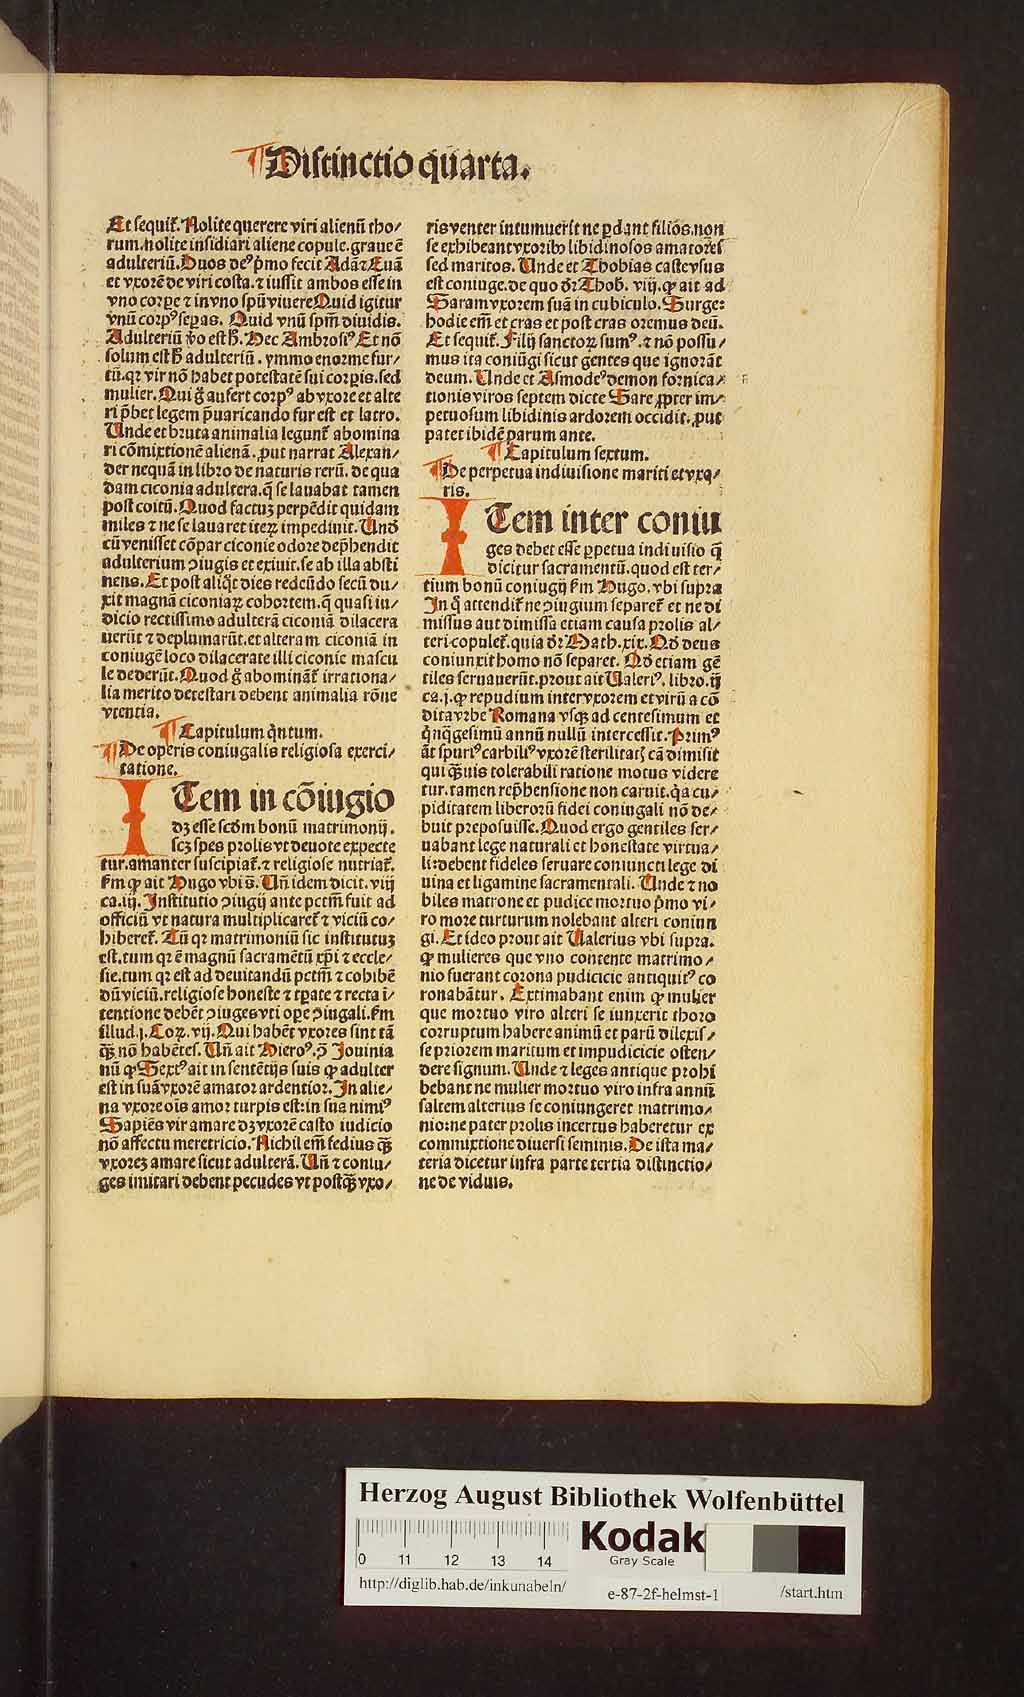 ¶Distinctio quarta.
Et sequit᷑. Nolite querere viri alienū tho⸗
rum. nolite insidiari aliene copule. graue ē
adulteriū. Duos deꝰ p̄mo fecit Adā ⁊ Euā
et vxorē de viri costa. ⁊ iussit ambos esse in
vno corpe ⁊ in vno spū viuere Quid igitur
vnū corpꝰ sepas. Quid vnū spm̄ diuidis.
Adulteriū ꝟo est ħ. Hec Ambrosiꝰ Et nō
solum est ħ adulteriū. ymmo enorme fur⸗
tū. qꝛ vir nō habet potestatē sui corꝑis. sed
mulier. Qui g̊ aufert corpꝰ ab vxore et alte
ri p̄bet legem p̄uaricando fur est et latro.
Unde et bruta animalia legunt᷑ abomina
ri cōmixtionē alienā. ꝓut narrat Alexan⸗
der nequā in libro de naturis rerū. de qua
dam ciconia adultera. q̄ se lauabat tamen
post coitū. Quod factuꝫ perpēdit quidam
miles ⁊ ne se lauaret iteꝝ impediuit. Unď
cū venisset cōpar ciconie odore dep̄hendit
adulterium ↄiugis et exiuit. se ab illa absti
nens. Et post aliq̄t dies redeūdo secū du⸗
xit magnā ciconiaꝝ cohortem. q̄ quasi iu⸗
dicio rectissimo adulterā ciconiā dilacera
uerūt ⁊ deplumarūt. et alteram ciconiā in
coniugē loco dilacerate illi ciconie mascu
le dederūt. Quod g̊ abomināt᷑ irrationa⸗
lia merito detestari debent animalia rōne
vtentia.
¶Capitulum q̇ntum.
¶De operis coniugalis religiosa exerci⸗
tatione.
ITem in cōiugio
dꝫ esse scd̄m bonū matrimonij.
scꝫ spes prolis vt deuote expecte
tur. amanter suscipiat᷑. ⁊ religiose nutriat᷑.
ẜm ꝙ ait Hugo vbi s̄. Un̄ idem dicit. viij
ca. iij. Institutio ↄiugij ante pctm̄ fuit ad
officiū vt natura multiplicaret᷑ ⁊ viciū co⸗
hiberet᷑. Tū qꝛ matrimoniū sic institutuꝫ
est. tum qꝛ ē magnū sacramētū xp̄i ⁊ eccle⸗
sie. tum qꝛ est ad deuitandū pctm̄ ⁊ cohibē
dū viciū. religiose honeste ⁊ tꝑate ⁊ recta ī⸗
tentione debēt ↄiuges vti oꝑe ↄiugali. ẜm
illud. j. Coꝝ. vij. Qui habēt vxores sint tā
q̄ꝫ nō habētes. Un̄ ait Hieroꝰ. ↄ̄ Jouinia
nū ꝙ Sextꝰ ait in sentētijs suis ꝙ adulter
est in suā vxorē amator ardentior. In alie⸗
na vxore oīs amor turpis est: in sua nimiꝰ
Sapiēs vir amare dꝫ vxorē casto iudicio
nō affectu meretricio. Nichil em̄ fedius q̄ꝫ
vxoreꝫ amare sicut adulterā. Un̄ ⁊ coniu⸗
ges imitari debent pecudes vt postq̄ꝫ vxo⸗
ris venter intumuerit ne ꝑdant filios. non
se exhibeant vxoribꝰ libidinosos amatores
sed maritos. Unde et Thobias caste vsus
est coniuge. de quo dr̄ Thob̄. viij. ꝙ ait ad
Saram vxorem suā in cubiculo. Surge:
hodie em̄ et cras et post cras oremus deū.
Et sequit᷑. Filij sanctoꝝ sumꝰ. ⁊ nō possu⸗
mus ita coniūgi sicut gentes que ignorāt
deum. Unde et Asmodeꝰ demon fornica⸗
tionis viros septem dicte Sare ꝓpter im⸗
petuosum libidinis ardorem occidit. ꝓut
patet ibidē parum ante.
¶Capitulum sextum.
¶De perpetua indiuisione mariti et vxo⸗
ris.
ITem inter coniu
ges debet esse ꝑpetua indiuisio q̄
dicitur sacramentū. quod est ter⸗
tium bonū coniugij ẜm Hugo. vbi supra
In q̊ attendit᷑ ne ↄiugium separet᷑ et ne di
missus aut dimissa etiam causa prolis al⸗
teri copulet᷑. quia dr̄ Math. xix. Qd̄ deus
coniunxit homo nō separet. Qd̄ etiam gē
tiles seruauerūt. prout ait Ualeriꝰ. libro. ij
ca. j. ꝙ repudium inter vxorem et virū a cō
dita vrbe Romana vsqꝫ ad centesimum et
q̇nq̄gesimū annū nullū intercessit. Primꝰ
āt spuriꝰ carbiliꝰ vxorē sterilitatꝭ cā dimisit
qui q̄ꝫuis tolerabili ratione motus videre
tur. tamen rep̄hensione non caruit. q̇a cu⸗
piditatem liberorū fidei coniugali nō de⸗
buit preposuisse. Quod ergo gentiles ser⸗
uabant lege naturali et honestate virtua⸗
li: debent fideles seruare coniuncti lege di
uina et ligamine sacramentali. Unde ⁊ no
biles matrone et pudice mortuo p̄mo vi⸗
ro more turturum nolebant alteri coniun
gi. Et ideo prout ait Ualerius vbi supra.
ꝙ mulieres que vno contente matrimo⸗
nio fuerant corona pudicicie antiquitꝰ co
ronabātur. Extimabant enim ꝙ mulier
que mortuo viro alteri se iunxerit thoro
corruptum habere animū et parū dilexis⸗
se priorem maritum et impudicicie osten⸗
dere signum. Unde ⁊ leges antique prohi
bebant ne mulier mortuo viro infra annū
saltem alterius se coniungeret matrimo⸗
nio: ne pater prolis incertus haberetur ex
commixtione diuersi seminis. De ista ma⸗
teria dicetur infra parte tertia distinctio⸗
ne de viduis.
Herzog August Bibliothek Wolfenbüttel
0 11 12 13 14
Kodak
Gray Scale
http://diglib.hab.de/inkunabeln/
e-87-2f-helmst-1
/start.htm